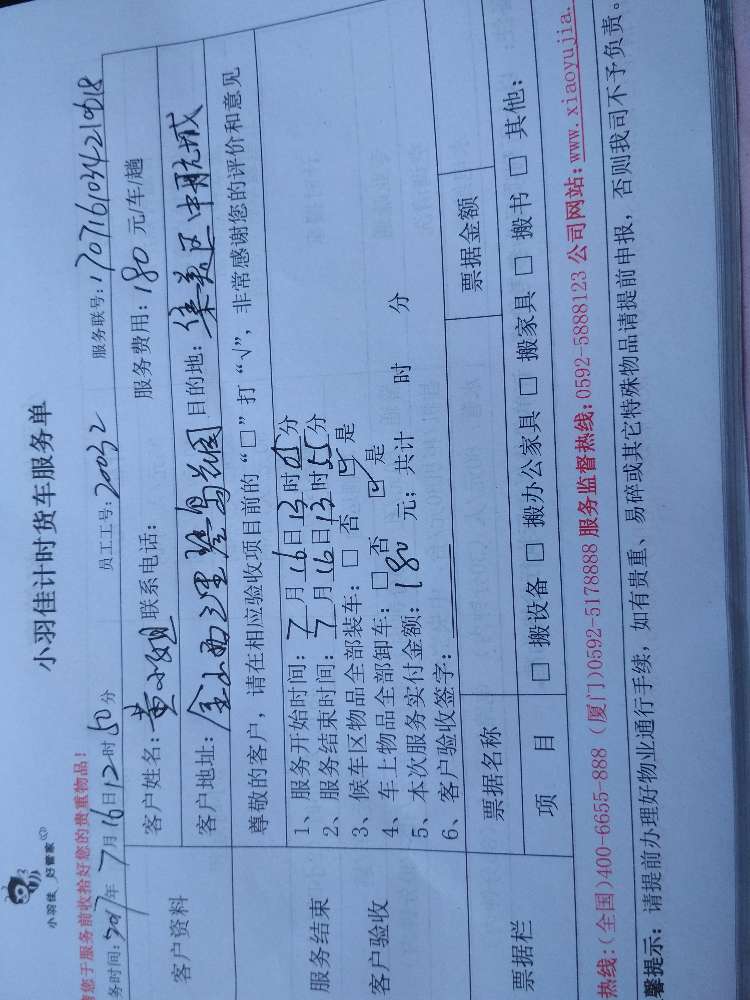 小羽佳 好管家
小羽佳计时货车服务单
您于服务前收拾好您的贵重物品!
务时间: 2017年7月16日12时50分 员工工号: 20032 服务联号: 170716103421918
客户资料
客户姓名: 黄小姐 联系电话: 服务费用: 180 元/车/趟
客户地址: 金山西二里 目的地: 集美区中航城
服务结束
客户验收
尊敬的客户，请在相应验收项目前的“□”打“√”，非常感谢您的评价和意见
1、服务开始时间: 7月16日13时05分
2、服务结束时间: 7月16日13时55分
3、候车区物品全部装车: □ 否 ☑ 是
4、车上物品全部卸车: □ 否 ☑ 是
5、本次服务实付金额: 180 元; 共计 时 分
6、客户验收签字:
票据栏
票据名称 票据金额
项 目 □ 搬设备 □ 搬办公家具 □ 搬家具 □ 搬书 □ 其他:
热线:(全国)400-6655-888 (厦门)0592-5178888 服务监督热线: 0592-5888123 公司网站: www.xiaoyujia.
馨提示: 请提前办理好物业通行手续，如有贵重、易碎或其它特殊物品请提前申报，否则我司不予负责。